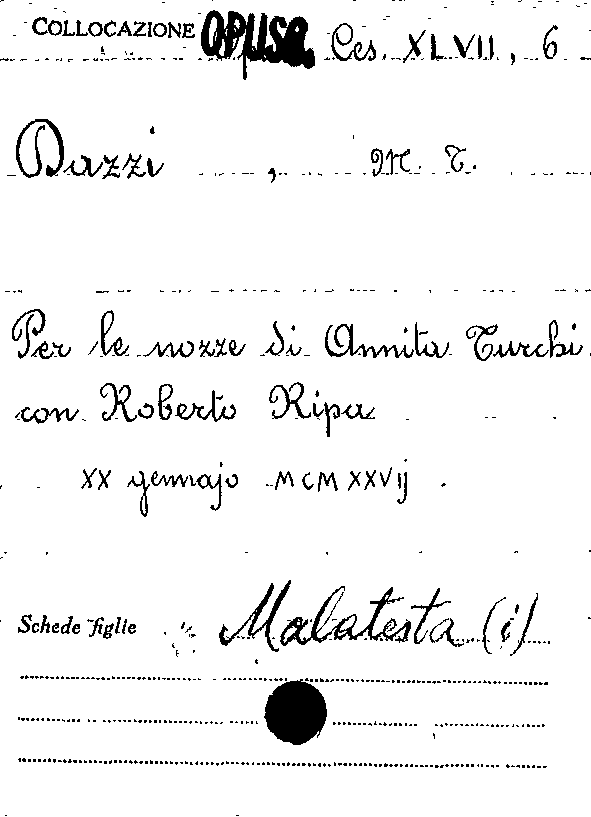 COLLOCAZIONE OPUSC. Ces. XLVII, 6
Dazzi, M. T.
Per le nozze di Annita Turchi
con Roberto Ripa
XX gennajo MCMXXVIJ.
Schede figlie Malatesta (i)